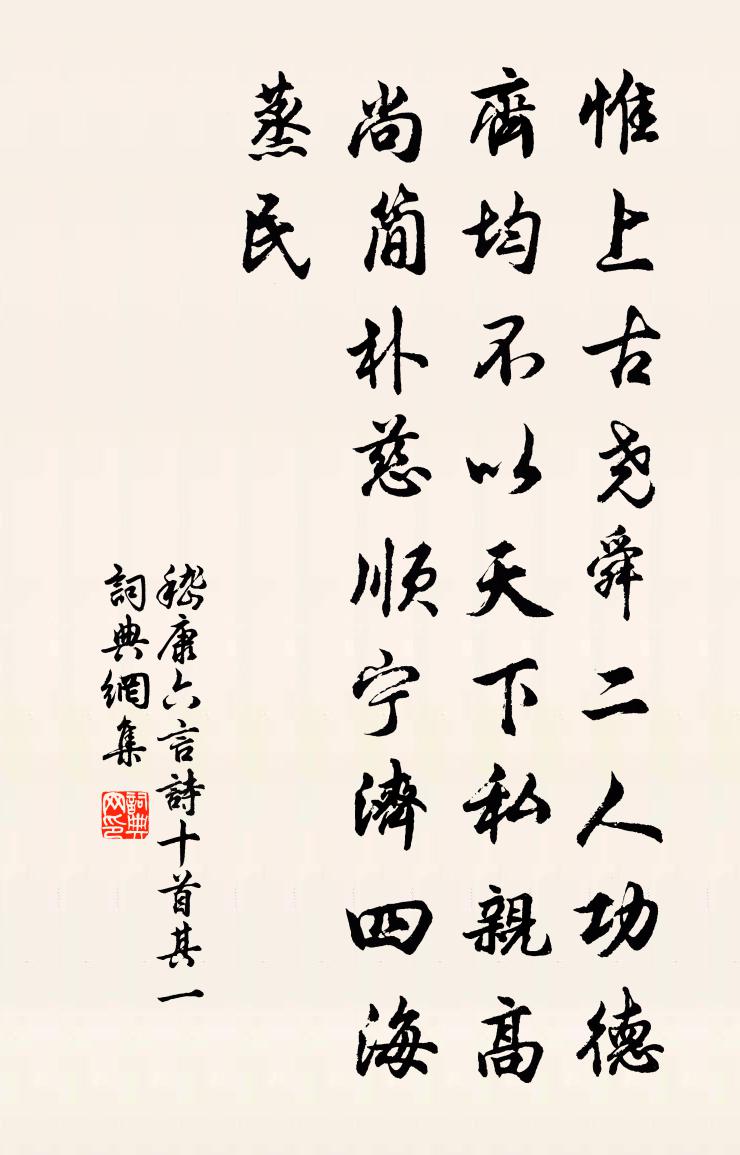 惟上古尧舜二人功德
齊均不以天下私親高
尚简朴慈順宁濟四海
蒸民
嵇康六言詩十首其一
詞典網集
詞典
网印